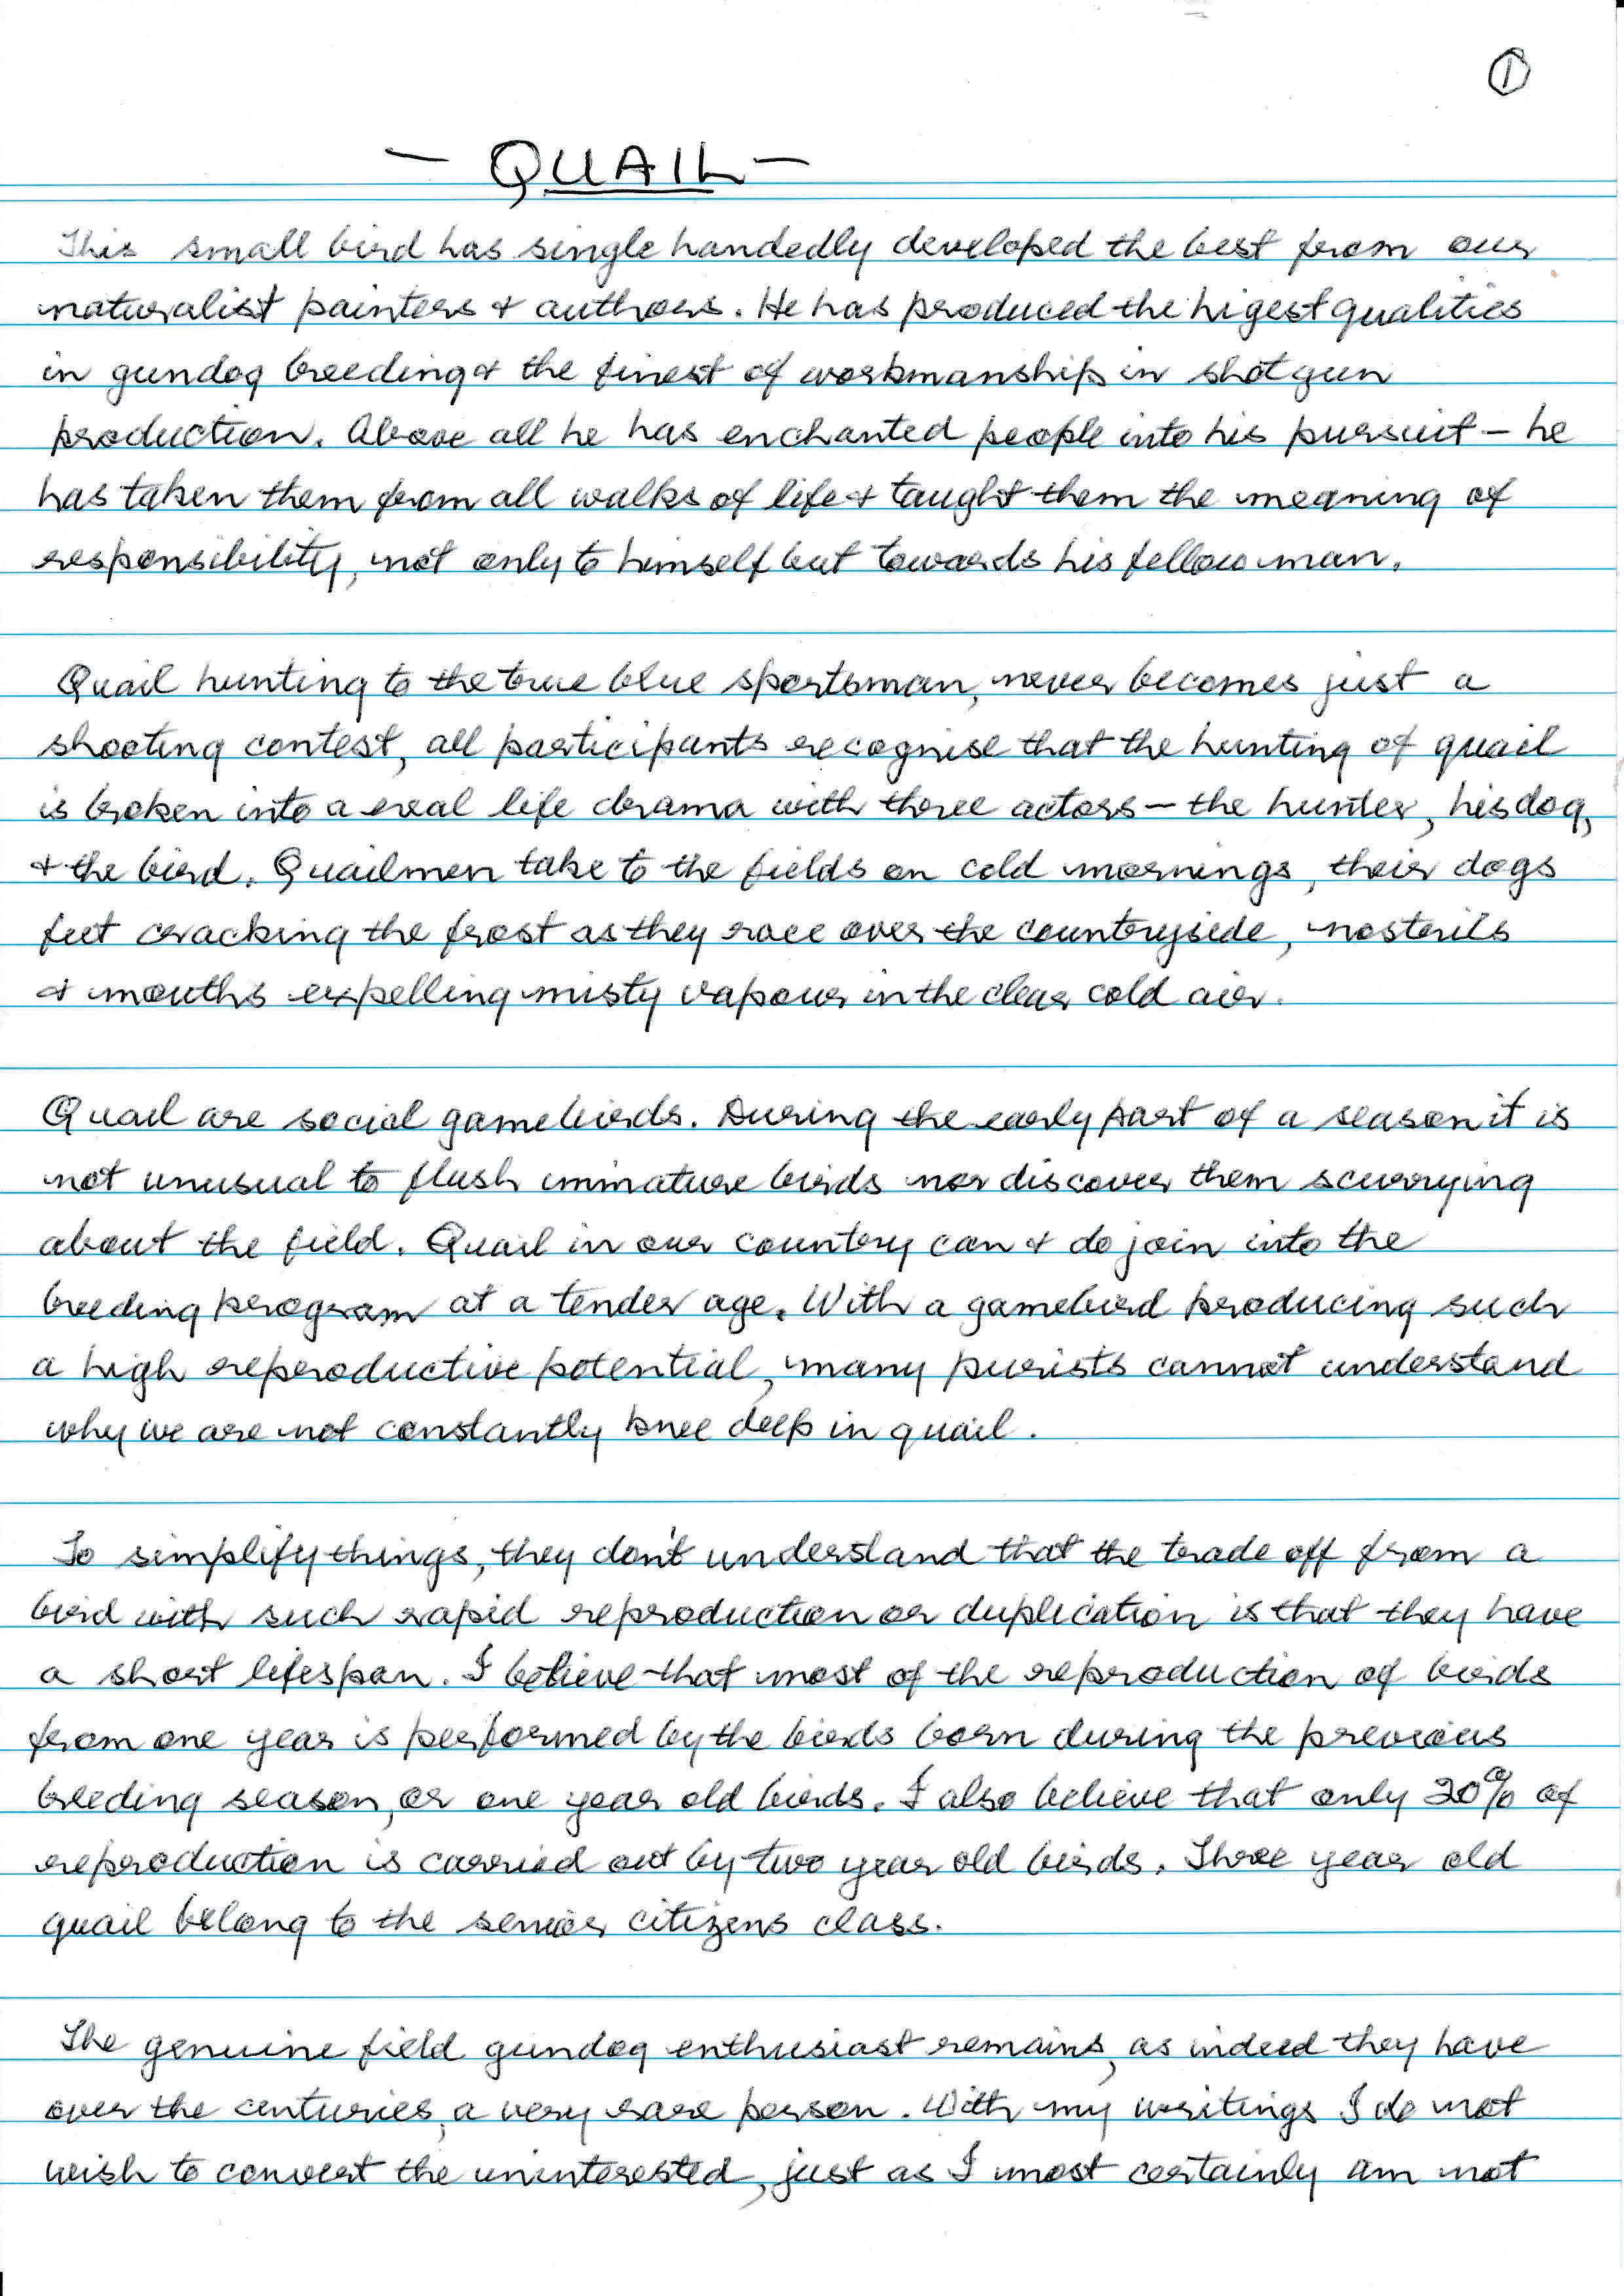 ①
- QUAIL -
This small bird has single handedly developed the best from our
naturalist painters & authors. He has produced the higest qualities
in gundog breeding & the finest of workmanship in shotgun
production. Above all he has enchanted people into his pursuit - he
has taken them from all walks of life & taught them the meaning of
responsibility, not only to himself but towards his fellow man.
Quail hunting to the true blue sportsman, never becomes just a
shooting contest, all participants recognise that the hunting of quail
is broken into a real life drama with three actors - the hunter, his dog,
& the bird. Quailmen take to the fields on cold mornings, their dogs
feet cracking the frost as they race over the countryside, nostrils
& mouths expelling misty vapour in the clear cold air.
Quail are social gamebirds. During the early part of a season it is
not unusual to flush immature birds nor discover them scurrying
about the field. Quail in our country can & do join into the
breeding program at a tender age. With a gamebird producing such
a high reproductive potential, many purists cannot understand
why we are not constantly knee deep in quail.
To simplify things, they don't understand that the trade off from a
bird with such rapid reproduction or duplication is that they have
a short lifespan. I believe that most of the reproduction of birds
from one year is performed by the birds born during the previous
breeding season, or one year old birds. I also believe that only 20% of
reproduction is carried out by two year old birds. Three year old
quail belong to the senior citizens class.
The genuine field gundog enthusiast remains, as indeed they have
over the centuries, a very rare person. With my writings I do not
wish to convert the uninterested, just as I most certainly am not